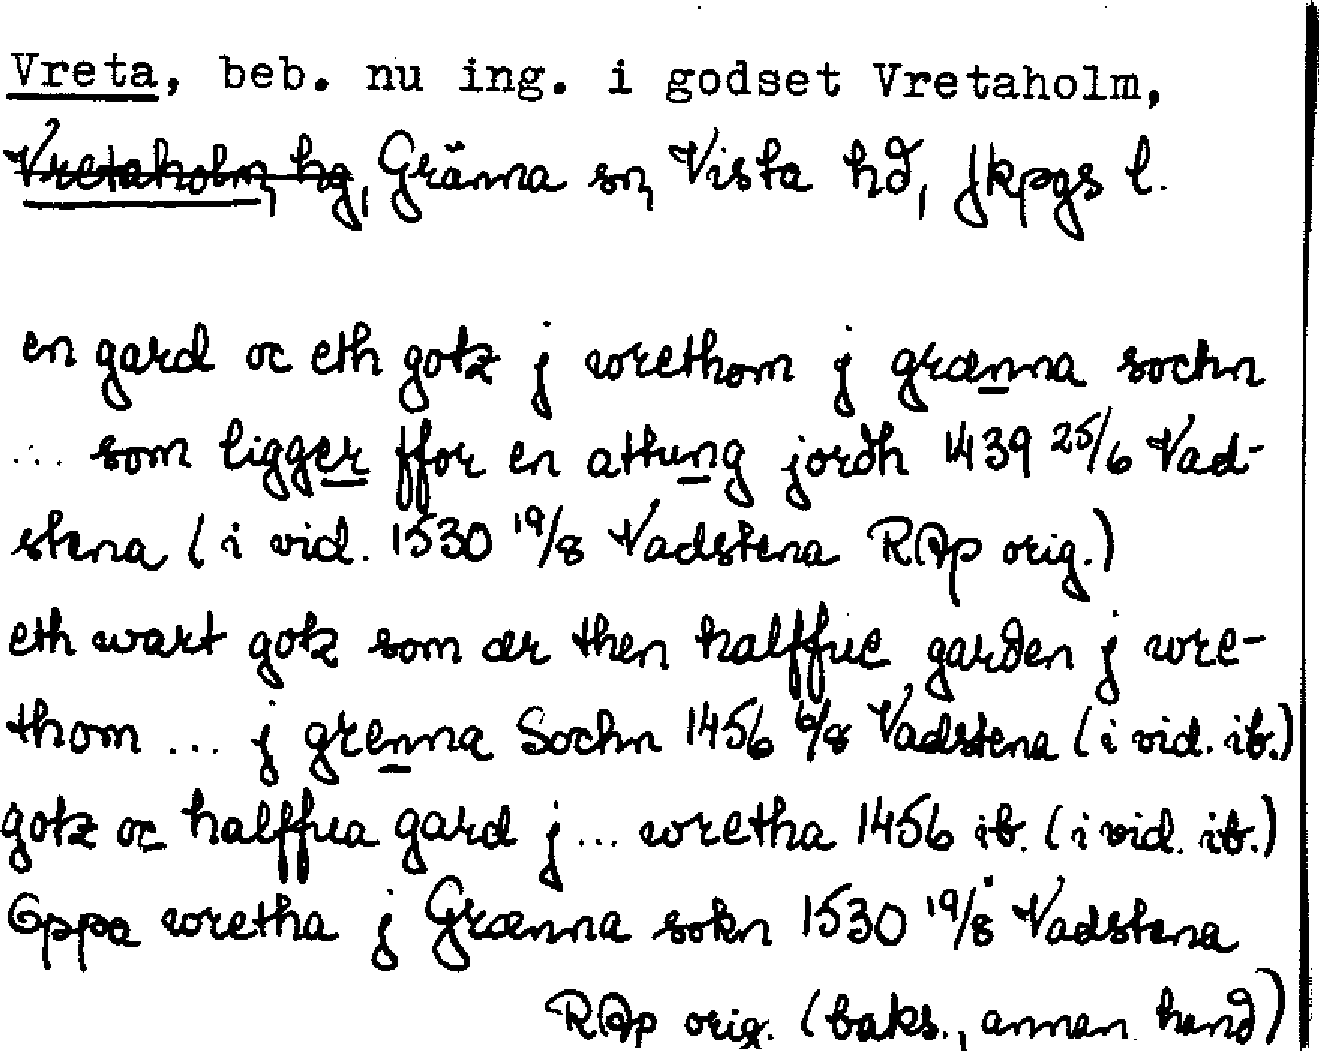 Vreta, beb. nu ing. i godset Vretaholm,
Vretaholm, hg, Gränna sn, Vista hd, Jkpgs l.
en gard oc eth gotz j wrethom j grænna sochn
... som ligger ffor en attung jordh 1439 25/6 Vad-
stena (i vid. 1530 19/8 Vadstena RAp orig.)
eth wart gotz som ær then halffue garden j wre-
thom ... j grenna Sochn 1456 6/8 Vadstena (i vid. ib.)
gotz oc halffua gard j ... wretha 1456 ib. (i vid. ib.)
Oppa wretha j Grænna sokn 1530 19/8 Vadstena
RAp orig. (baks., annan hand)